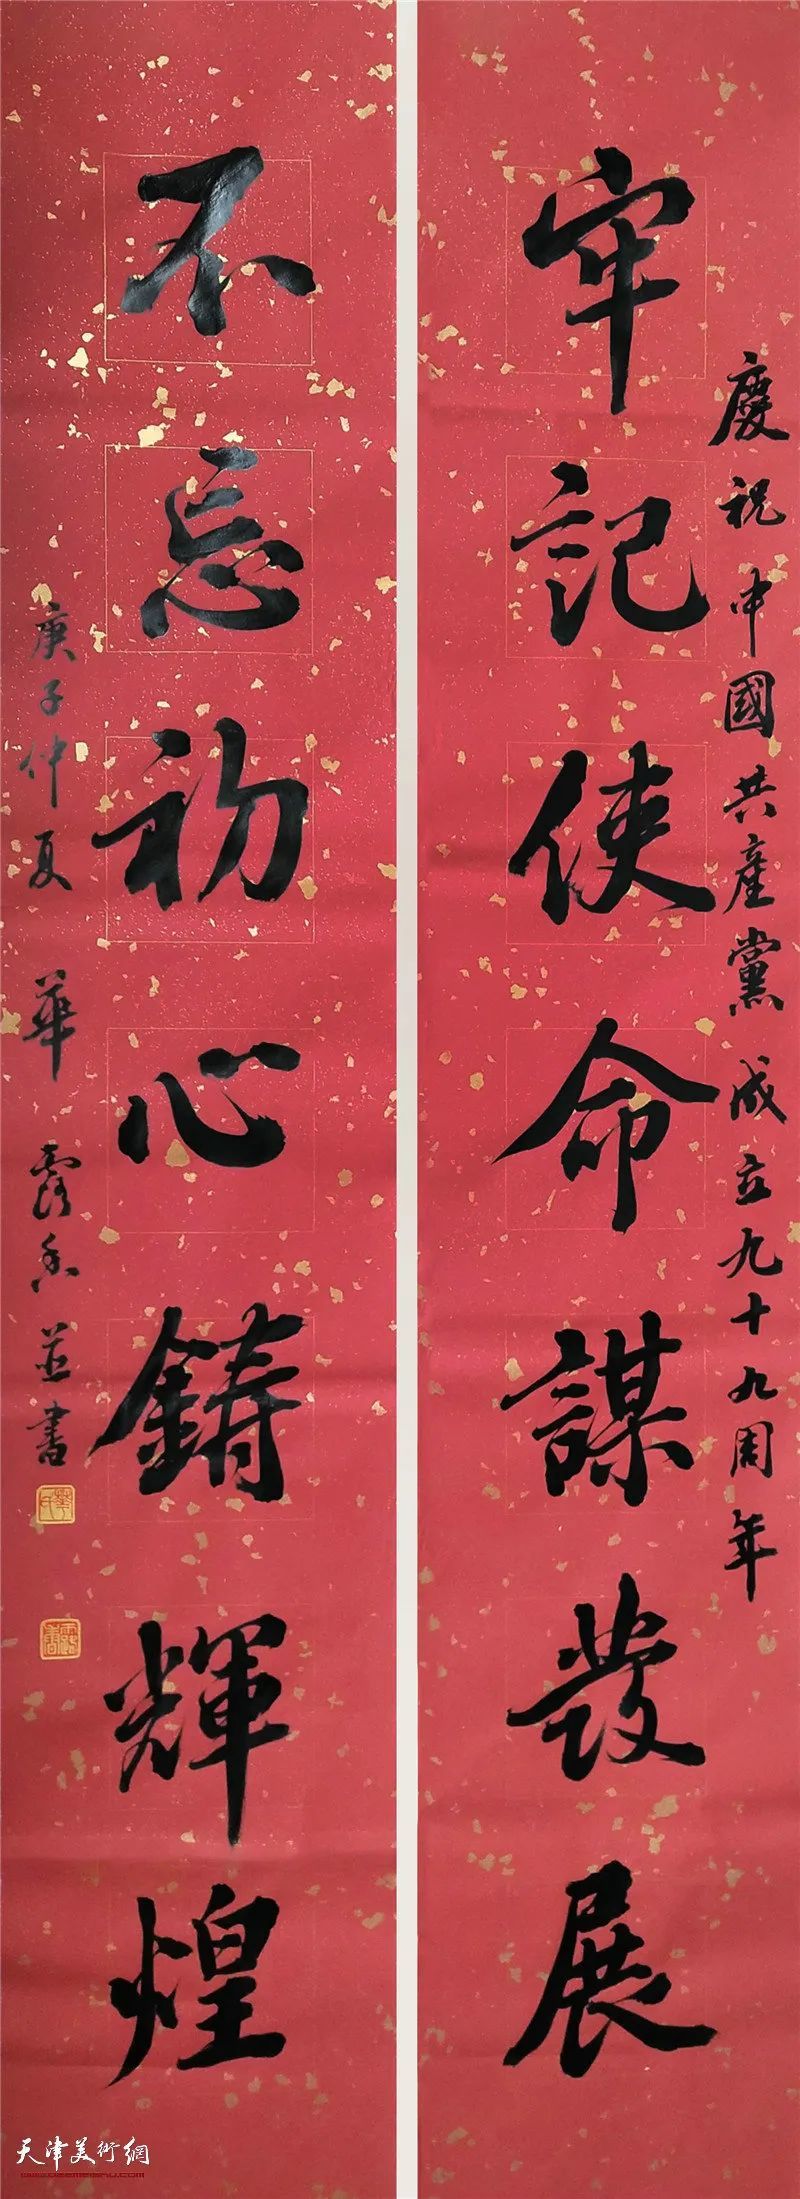 慶祝中國共產黨成立九十九周年
牢記使命謀發展
不忘初心鑄輝煌
庚子仲夏 華露香並書
天津美術網